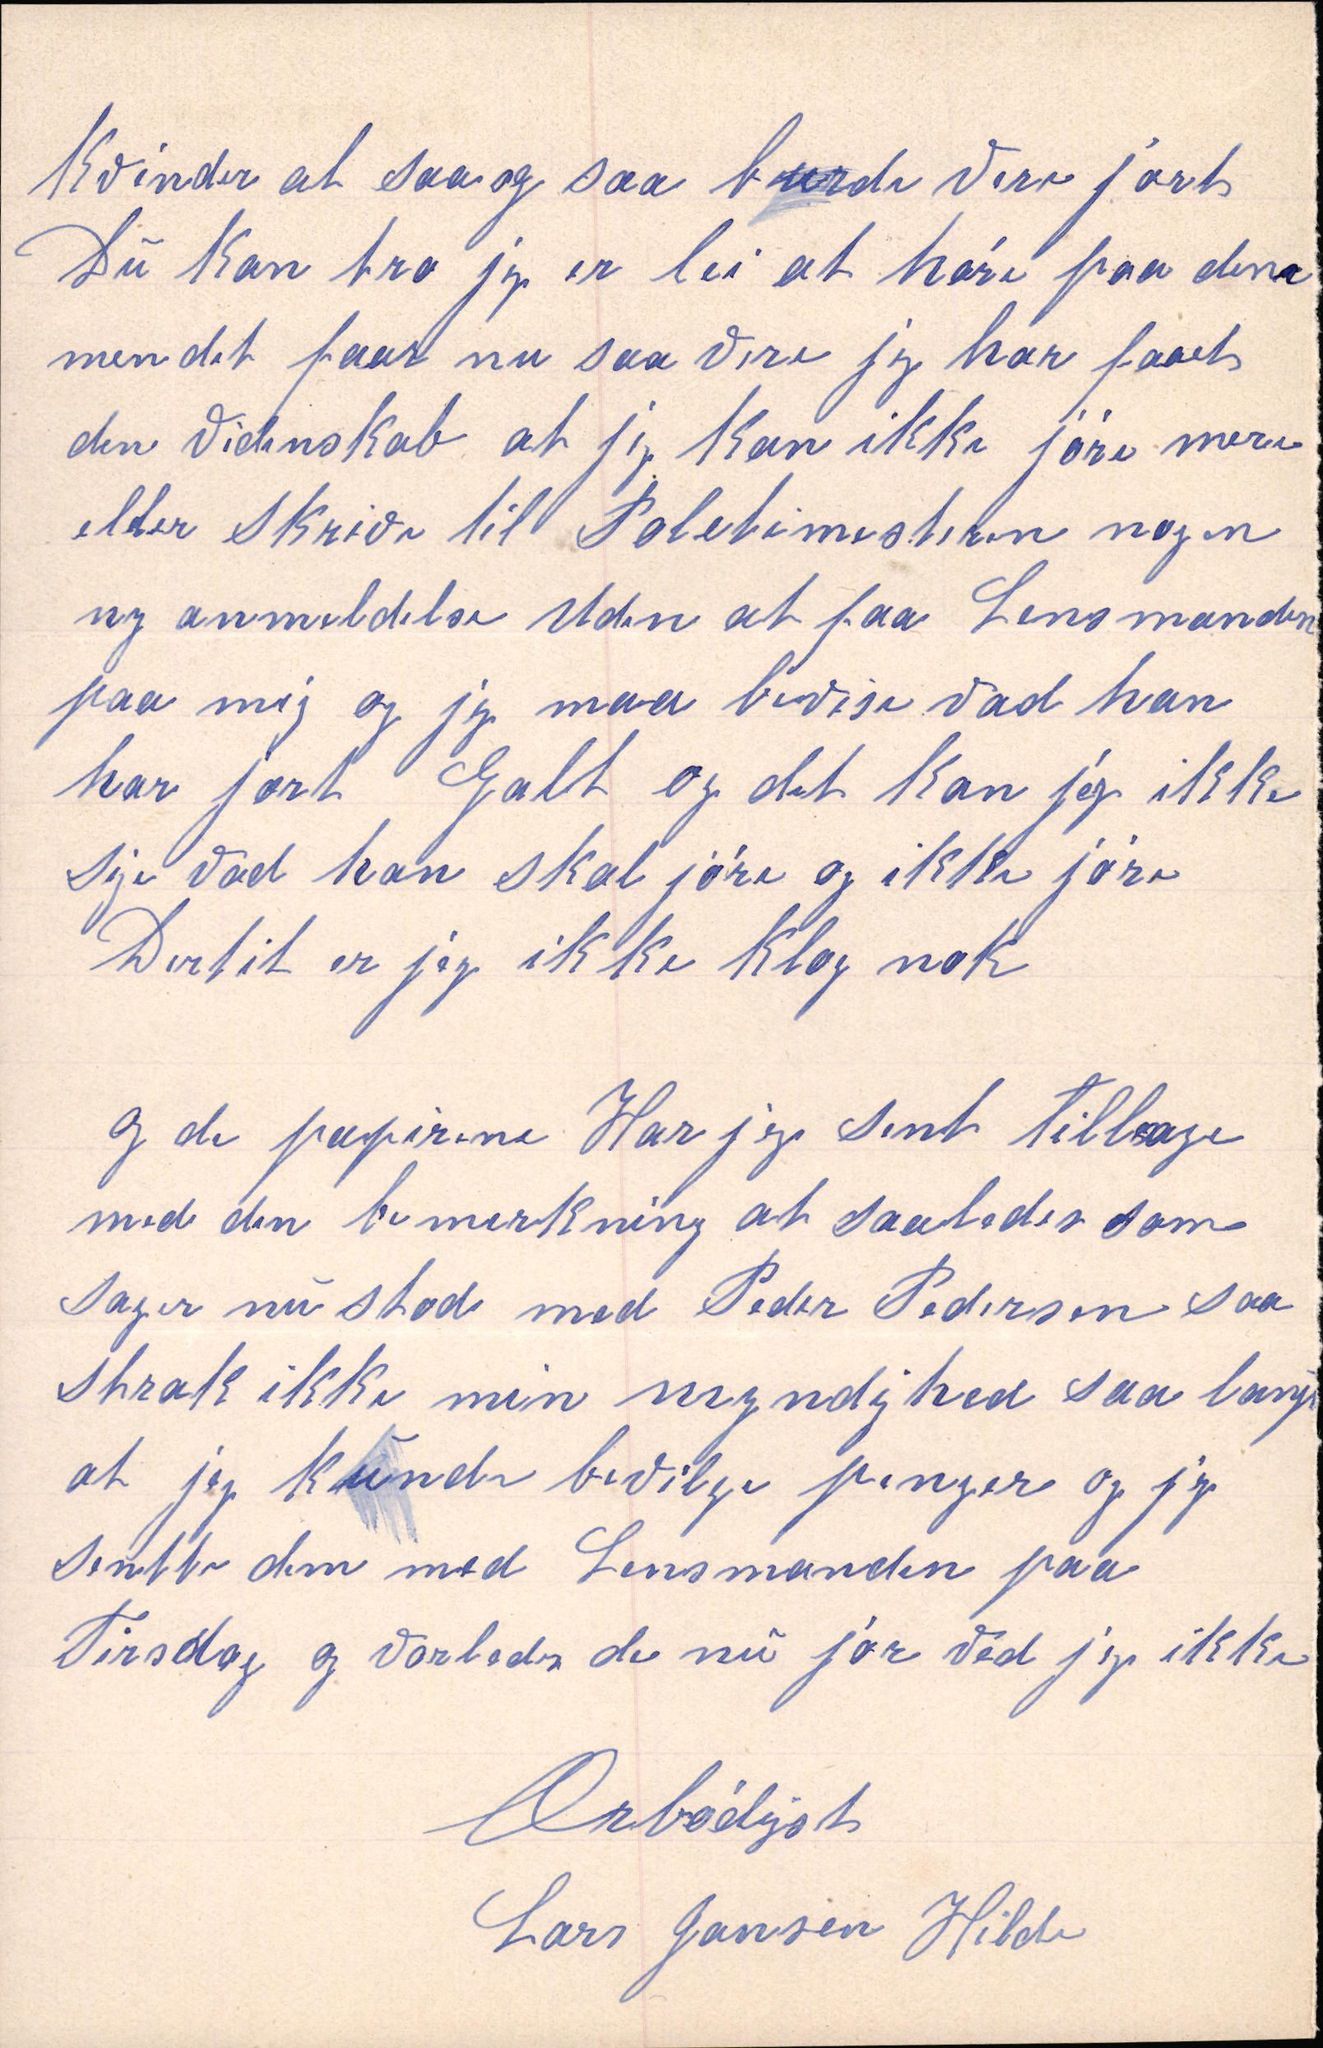 Kvinder at saa og saa burde vere jort
Dŭ Kan tro jeg er lei at høre paa dene
men det faar nu saa vere jeg har faaet
den videnskab at jeg Kan ikke jøre mere
eller Skrive til Poletimesteren nogen
ny anmeldelse Uden at faa Lensmanden
paa mig og jeg maa bevise vad han
har jort Galt og det Kan jeg ikke
sige vad han skal jøre og ikke jøre
Dertil er jeg ikke Klog nok
og de papirene Har jeg sent Tilbage
med den bemerkning at saaledes som
sager nŭ stode med Peder Pedersen saa
strak ikke min myndighed saa langt
at jeg Kŭnde bevilge penger og jeg
sentte dem med Lensmanden paa
Tirsdag og vorledes de nŭ jør ved jeg ikke
Ærbødigst
Lars Jansen Hilde